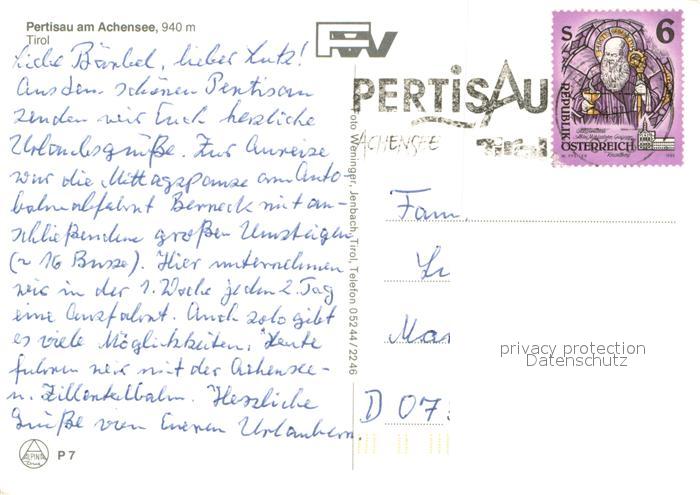 Pertisau am Achensee, 940 m
Tirol
Liebe Bärbel, lieber Lutz!
Aus dem schönen Pertisau
senden wir Euch herzliche
Urlaubsgrüße. Zur Anreise
war die Mittagspause am Auto
bahnabfahrt Berneck mit an-
schließendem großen Umsteigen
(~ 16 Busse). Hier unternehmen
wir in der 1. Woche jeden 2. Tag
eine Ausfahrt. Auch solo gibt
es viele Möglichkeiten. Heute
fuhren wir mit der Achensee-
u. Zillertalbahn. Herzliche
Grüße von Eueren Urlaubern
ALPINA
P 7
Foto Weninger, Jenbach, Tirol, Telefon 05244/2246
PERTISAU
ACHENSEE
Tirol
S 6
REPUBLIK
ÖSTERREICH
Fam.
D 07
privacy protection
Datenschutz